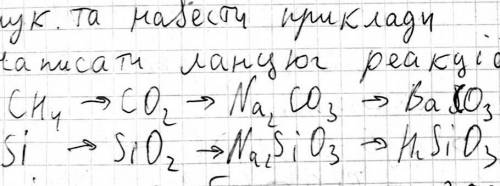 рук. та навести приклади
Написати ланцюг реакцій
CH₄ → CO₂ → Na₂CO₃ → BaCO₃
Si → SiO₂ → Na₂SiO₃ → H₂SiO₃